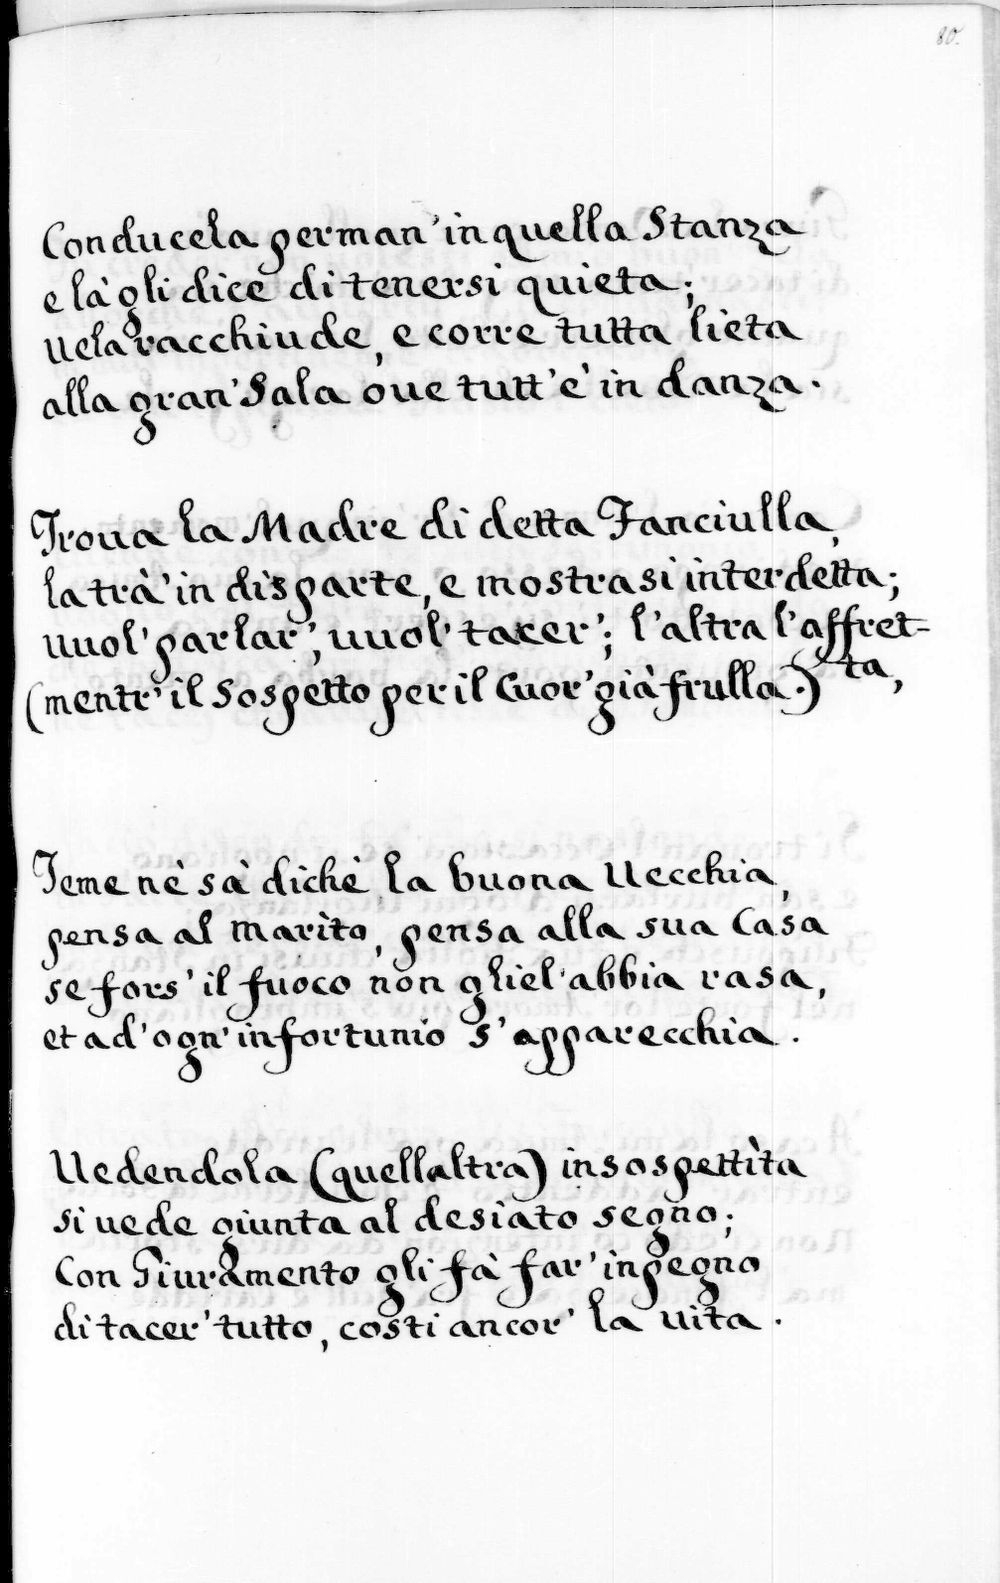 80.
Conducela per man' in quella Stanza
e là gli dice di tenersi quieta;
uela racchiude, e corre tutta lieta
alla gran' Sala oue tutt' è in danza.
Troua la Madre di detta Fanciulla,
la trà' in disparte, e mostrasi interdetta;
uuol' parlar', uuol' tacer'; l'altra l'affret=
ta,
(mentr' il sospetto per il Cuor' già frulla.)
Teme nè sà dichè la buona Uecchia,
pensa al marito, pensa alla sua Casa
se fors' il fuoco non gliel' abbia rasa,
et ad' ogn' infortunio s' apparecchia.
Uedendola (quell altra) insospettita
si uede giunta al desiato segno;
Con Giuramento gli fà far' inpegno
di tacer' tutto, costi ancor' la uita.